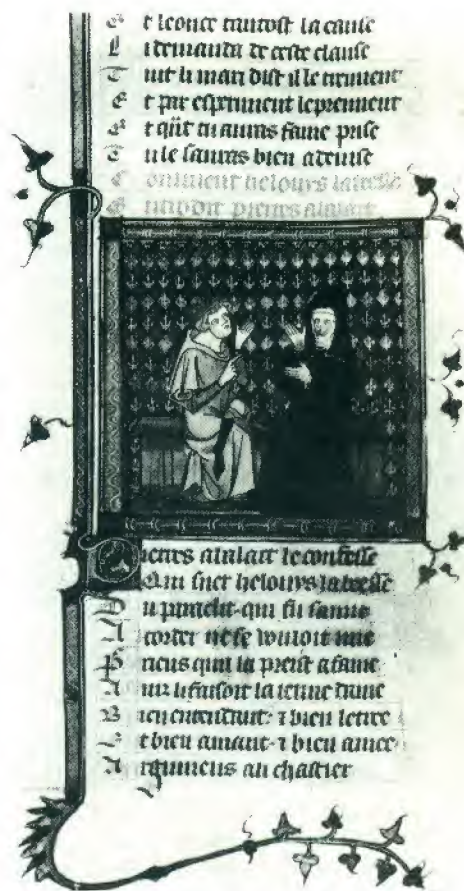 t leonce trouvast la cause
L i demanda de ceste clause
T uit li mari dist il le
E t par esperiment leprennent
e t qnt tu auras fame prise
T u le sauras bien a deuise
C omment helouys labesse
dit pierres abalart
Pierres abalart le confesse
Qui suer helouys labeesse
Du paraclit qui fu samie
A corder ne se vouloit mie
P riens quil la preist a fame
A ins li faisoit la ieune dame
B ien entendant 7 bien lettree
E t bien amant 7 bien amee
A rgumens au chastier